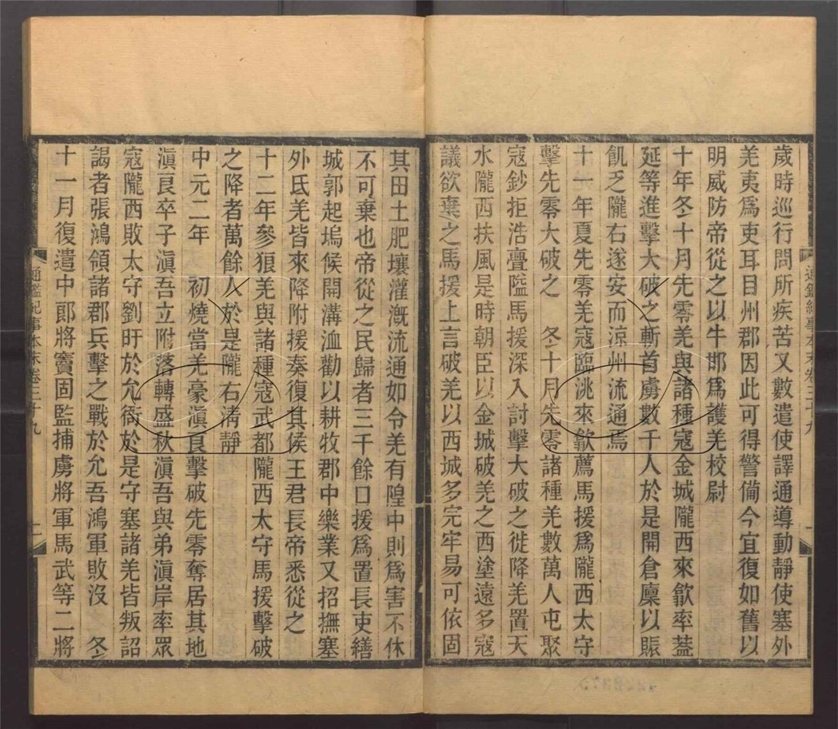 歲時巡行問所疾苦又數遣使譯通導動靜使塞外
羌夷爲吏耳目州郡因此可得警備今宜復如舊以
明威防帝從之以牛邯爲護羌校尉
十年冬十月先零羌與諸種寇金城隴西來歙率蓋
延等進擊大破之斬首虜數千人於是開倉廩以賑
飢乏隴右遂安而涼州流通焉
十一年夏先零羌寇臨洮來歙薦馬援爲隴西太守
擊先零大破之 冬十月先零諸種羌數萬人屯聚
寇鈔拒浩亹隘馬援深入討擊大破之徙降羌置天
水隴西扶風是時朝臣以金城破羌之西塗遠多寇
議欲棄之馬援上言破羌以西城多完牢易可依固
通鑑紀事本末卷三十九
其田土肥壤灌漑流通如令羌有隍中則爲害不休
不可棄也帝從之民歸者三千餘口援爲置長吏繕
城郭起塢候開溝洫勸以耕牧郡中樂業又招撫塞
外氐羌皆來降附援奏復其侯王君長帝悉從之
十二年參狼羌與諸種寇武都隴西太守馬援擊破
之降者萬餘人於是隴右淸靜
中元二年 初燒當羌豪滇良擊破先零奪居其地
滇良卒子滇吾立附落轉盛秋滇吾與弟滇岸率眾
寇隴西敗太守劉盱於允街於是守塞諸羌皆叛詔
謁者張鴻領諸郡兵擊之戰於允吾鴻軍敗沒 冬
十一月復遣中郎將竇固監捕虜將軍馬武等二將
通鑑紀事本末卷三十九
二